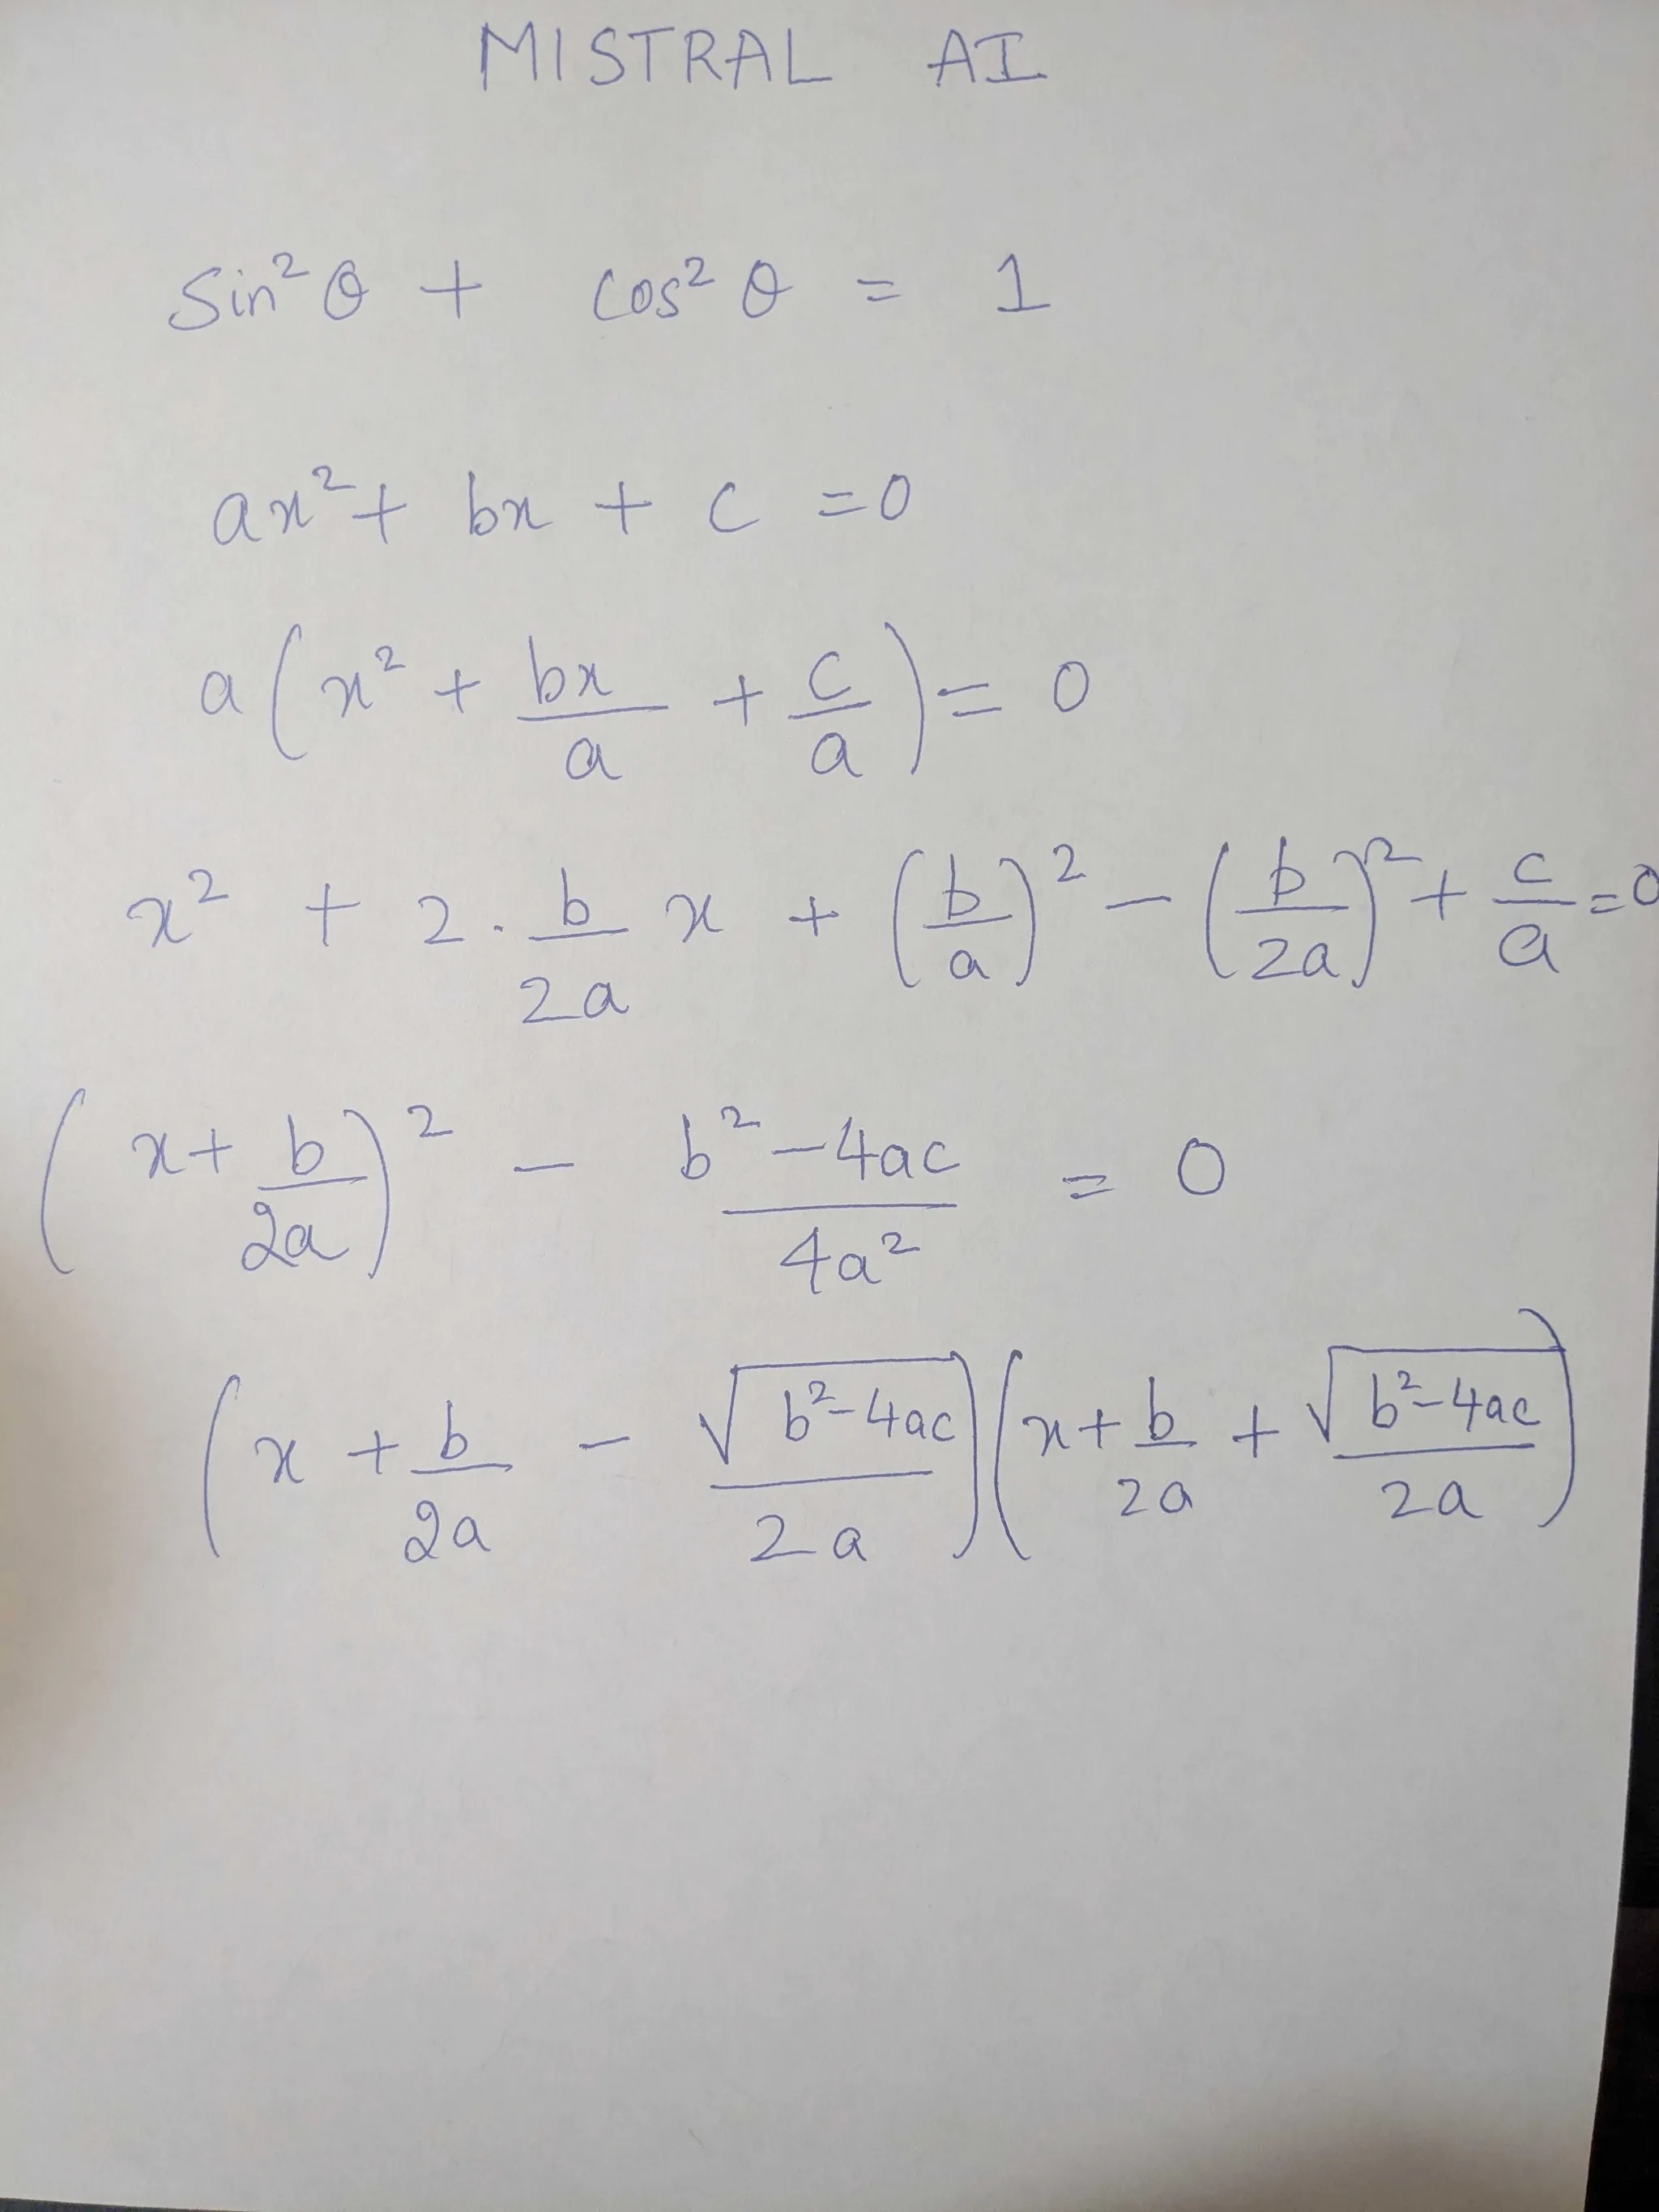 MISTRAL AI
sin²θ + cos²θ = 1
ax² + bx + c = 0
a(x² + bx/a + c/a) = 0
x² + 2·b/2a x + (b/a)² − (b/2a)² + c/a = 0
(x + b/2a)² − b²−4ac/4a² = 0
(x + b/2a − √(b²−4ac)/2a)(x + b/2a + √(b²−4ac)/2a)